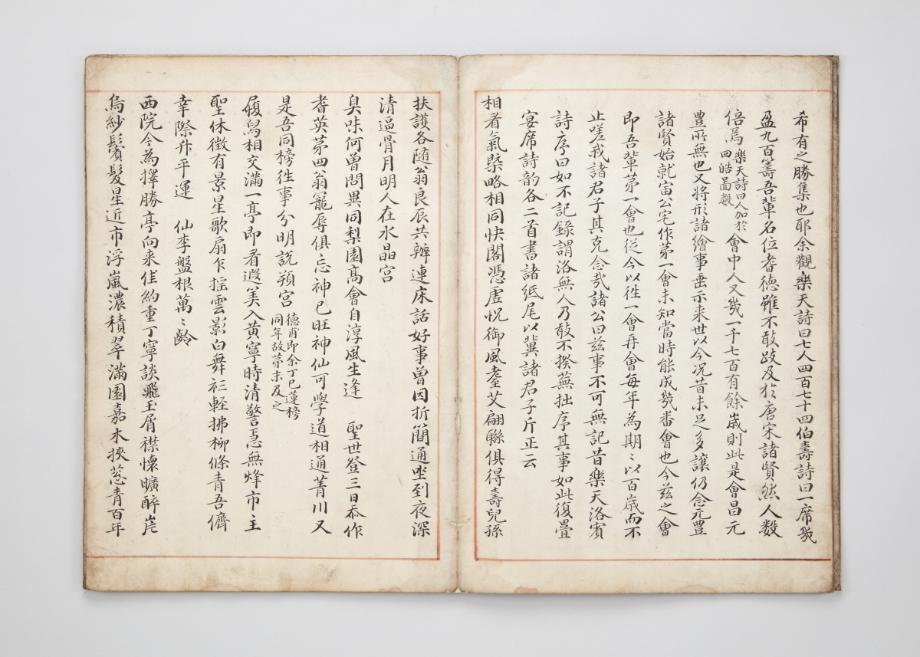 希有之勝集也耶余觀樂天詩曰七人四百七十四伯壽詩曰一席幾
盈九百籌吾輩名位耆德雖不敢跂及於唐宋諸賢然人數
倍焉樂天詩曰人加於四皓啚觀會中人又幾一千七百有餘歲則此是會昌元
豊所無也又將形諸繪事垂示来世以今况昔未足多讓仍念元豊
諸賢始就富公宅作第一會未知當時能成幾番會也今玆之會
即吾輩第一會也從今以徃一會再會每年為期〻以百歲而不
止嗟我諸君子其克念哉諸公曰玆事不可無記昔樂天洛賓
詩序曰如不記錄謂洛無人乃敢不揆蕪拙序其事如此復疊
宴席詩韵各二首書諸紙尾以冀諸君子斤正云
相看氣槩略相同快閣憑虛怳御風耋艾翩聯俱得壽兒孫
扶護各隨翁良辰共辦連床話好事曾因折簡通坐到夜深
清逼骨月明人在水晶宮
臭味何曾問異同梨園高會自淳風生逢 聖世登三日忝作
耆英第四翁寵辱俱忘神已旺神仙可學道相通菁川又
是吾同榜徃事分明說頖宮德甫即余丁巳蓮榜同年故第末及之
履舃相交滿一亭即看遐美入黃寧時清警急無烽市主
聖休徵有景星歌扇乍搖雲影白舞衫輕拂柳條青吾儕
幸際升平運 仙李盤根萬〻齡
西院今為擇勝亭向来佳約重丁寧談飛玉屑襟懷曠醉岸
烏紗鬢髮星近市浮嵐濃積翠滿園嘉木挾葱青百年